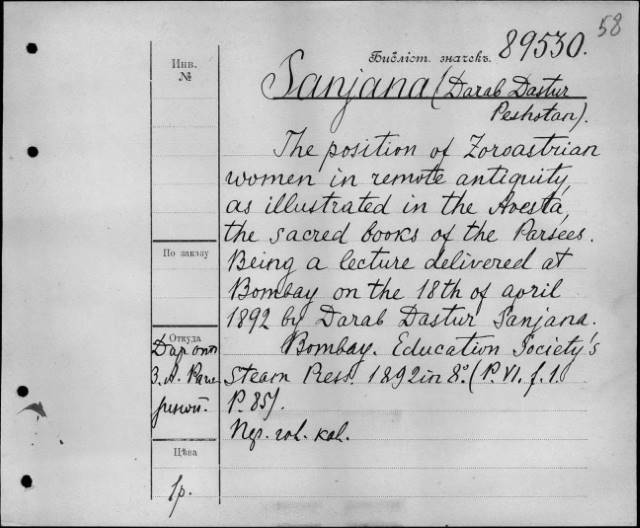 58
Библіот. значекъ. 89530.
Инв.
№
Sanjana (Darab Dastur
Peshotan).
The position of Zoroastrian
women in remote antiquity,
as illustrated in the Avesta,
the sacred books of the Parsees.
По заказу
Being a lecture delivered at
Bombay on the 18th of april
1892 by Darab Dastur Sanjana.
Откуда
Даръ отъ
З. А. Раго
Bombay. Education Society's
Steam Press. 1892 in 8º. (P. VI. f. 1.
P. 85).
Цѣна
1р.